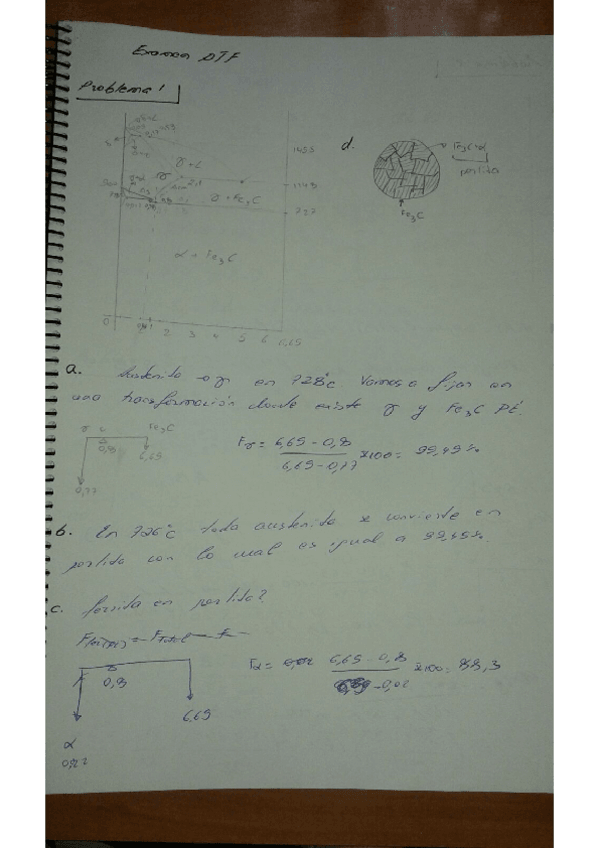 Examen DTF
Problema 1
1455
γ + L
γ
2,1
1148
γ + Fe3C
727
α + Fe3C
0
2 3 4 5 6 6,69
d.
Fe3C+α
perlita
Fe3C
a. Austenita → γ en 728°C. Vamos a fijar en
una transformación donde existe γ y Fe3C PE.
γ Fe3C
0,8
6,69
0,77
Fγ = 6,69 - 0,8 / 6,69 - 0,77 x100 = 99,49%
b. En 726°C toda austenita se convierte en
perlita con lo cual es igual a 99,49%.
c. ferrita en perlita?
0,8
6,69
α
Fα = 6,69 - 0,8 / - 0,02 x100 = 88,3